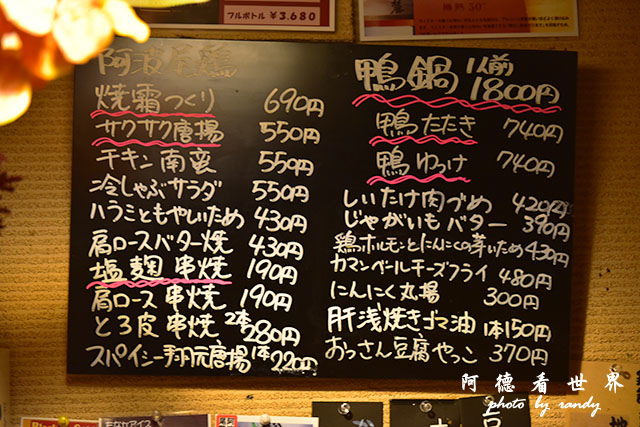 フルボトル ¥3,680
阿波尾鶏
焼霜つくり 690円
サクサク唐揚 550円
チキン南蛮 550円
冷しゃぶサラダ 550円
ハラミともやしいため 430円
肩ロースバター焼 430円
塩麹串焼 190円
肩ロース串焼 190円
とろ皮串焼 2本280円
スパイシー手羽元唐揚 1本220円
鴨鍋 1人前 1800円
鴨たたき 740円
鴨ゆっけ 740円
しいたけ肉づめ 420円
じゃがいもバター 390円
鶏ホルモンとにんにくの芽いため 430円
カマンベールチーズフライ 480円
にんにく丸揚 300円
肝浅焼きゴマ油 1本150円
おっさん豆腐やっこ 370円
阿德看世界
photo by randy